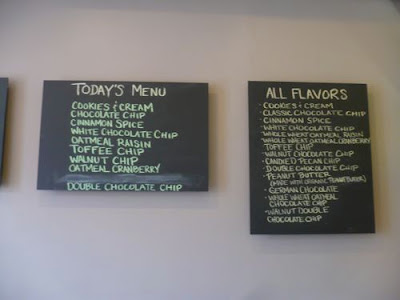 TODAY'S MENU
COOKIES & CREAM
CHOCOLATE CHIP
CINNAMON SPICE
WHITE CHOCOLATE CHIP
OATMEAL RAISIN
TOFFEE CHIP
WALNUT CHIP
OATMEAL CRANBERRY
DOUBLE CHOCOLATE CHIP
ALL FLAVORS
· COOKIES & CREAM
· CLASSIC CHOCOLATE CHIP
· CINNAMON SPICE
· WHITE CHOCOLATE CHIP
· WHOLE WHEAT OATMEAL RAISIN
· WHOLE WHEAT OATMEAL CRANBERRY
· TOFFEE CHIP
· WALNUT CHOCOLATE CHIP
· CANDIED PECAN CHIP
· DOUBLE CHOCOLATE CHIP
· PEANUT BUTTER
(MADE WITH ORGANIC PEANUT BUTTER)
· GERMAN CHOCOLATE
· WHOLE WHEAT OATMEAL
CHOCOLATE CHIP
· WALNUT DOUBLE
CHOCOLATE CHIP